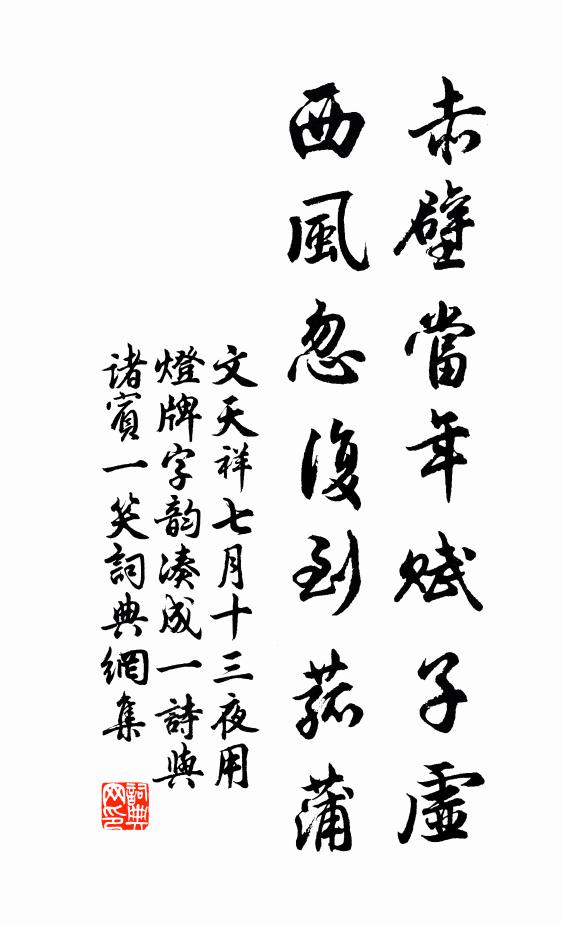 赤壁當年賦子虛
西風忽復到菰蒲
文天祥七月十三夜用
燈牌字韵湊成一詩與
诸賓一笑詞典網集
詞典网印